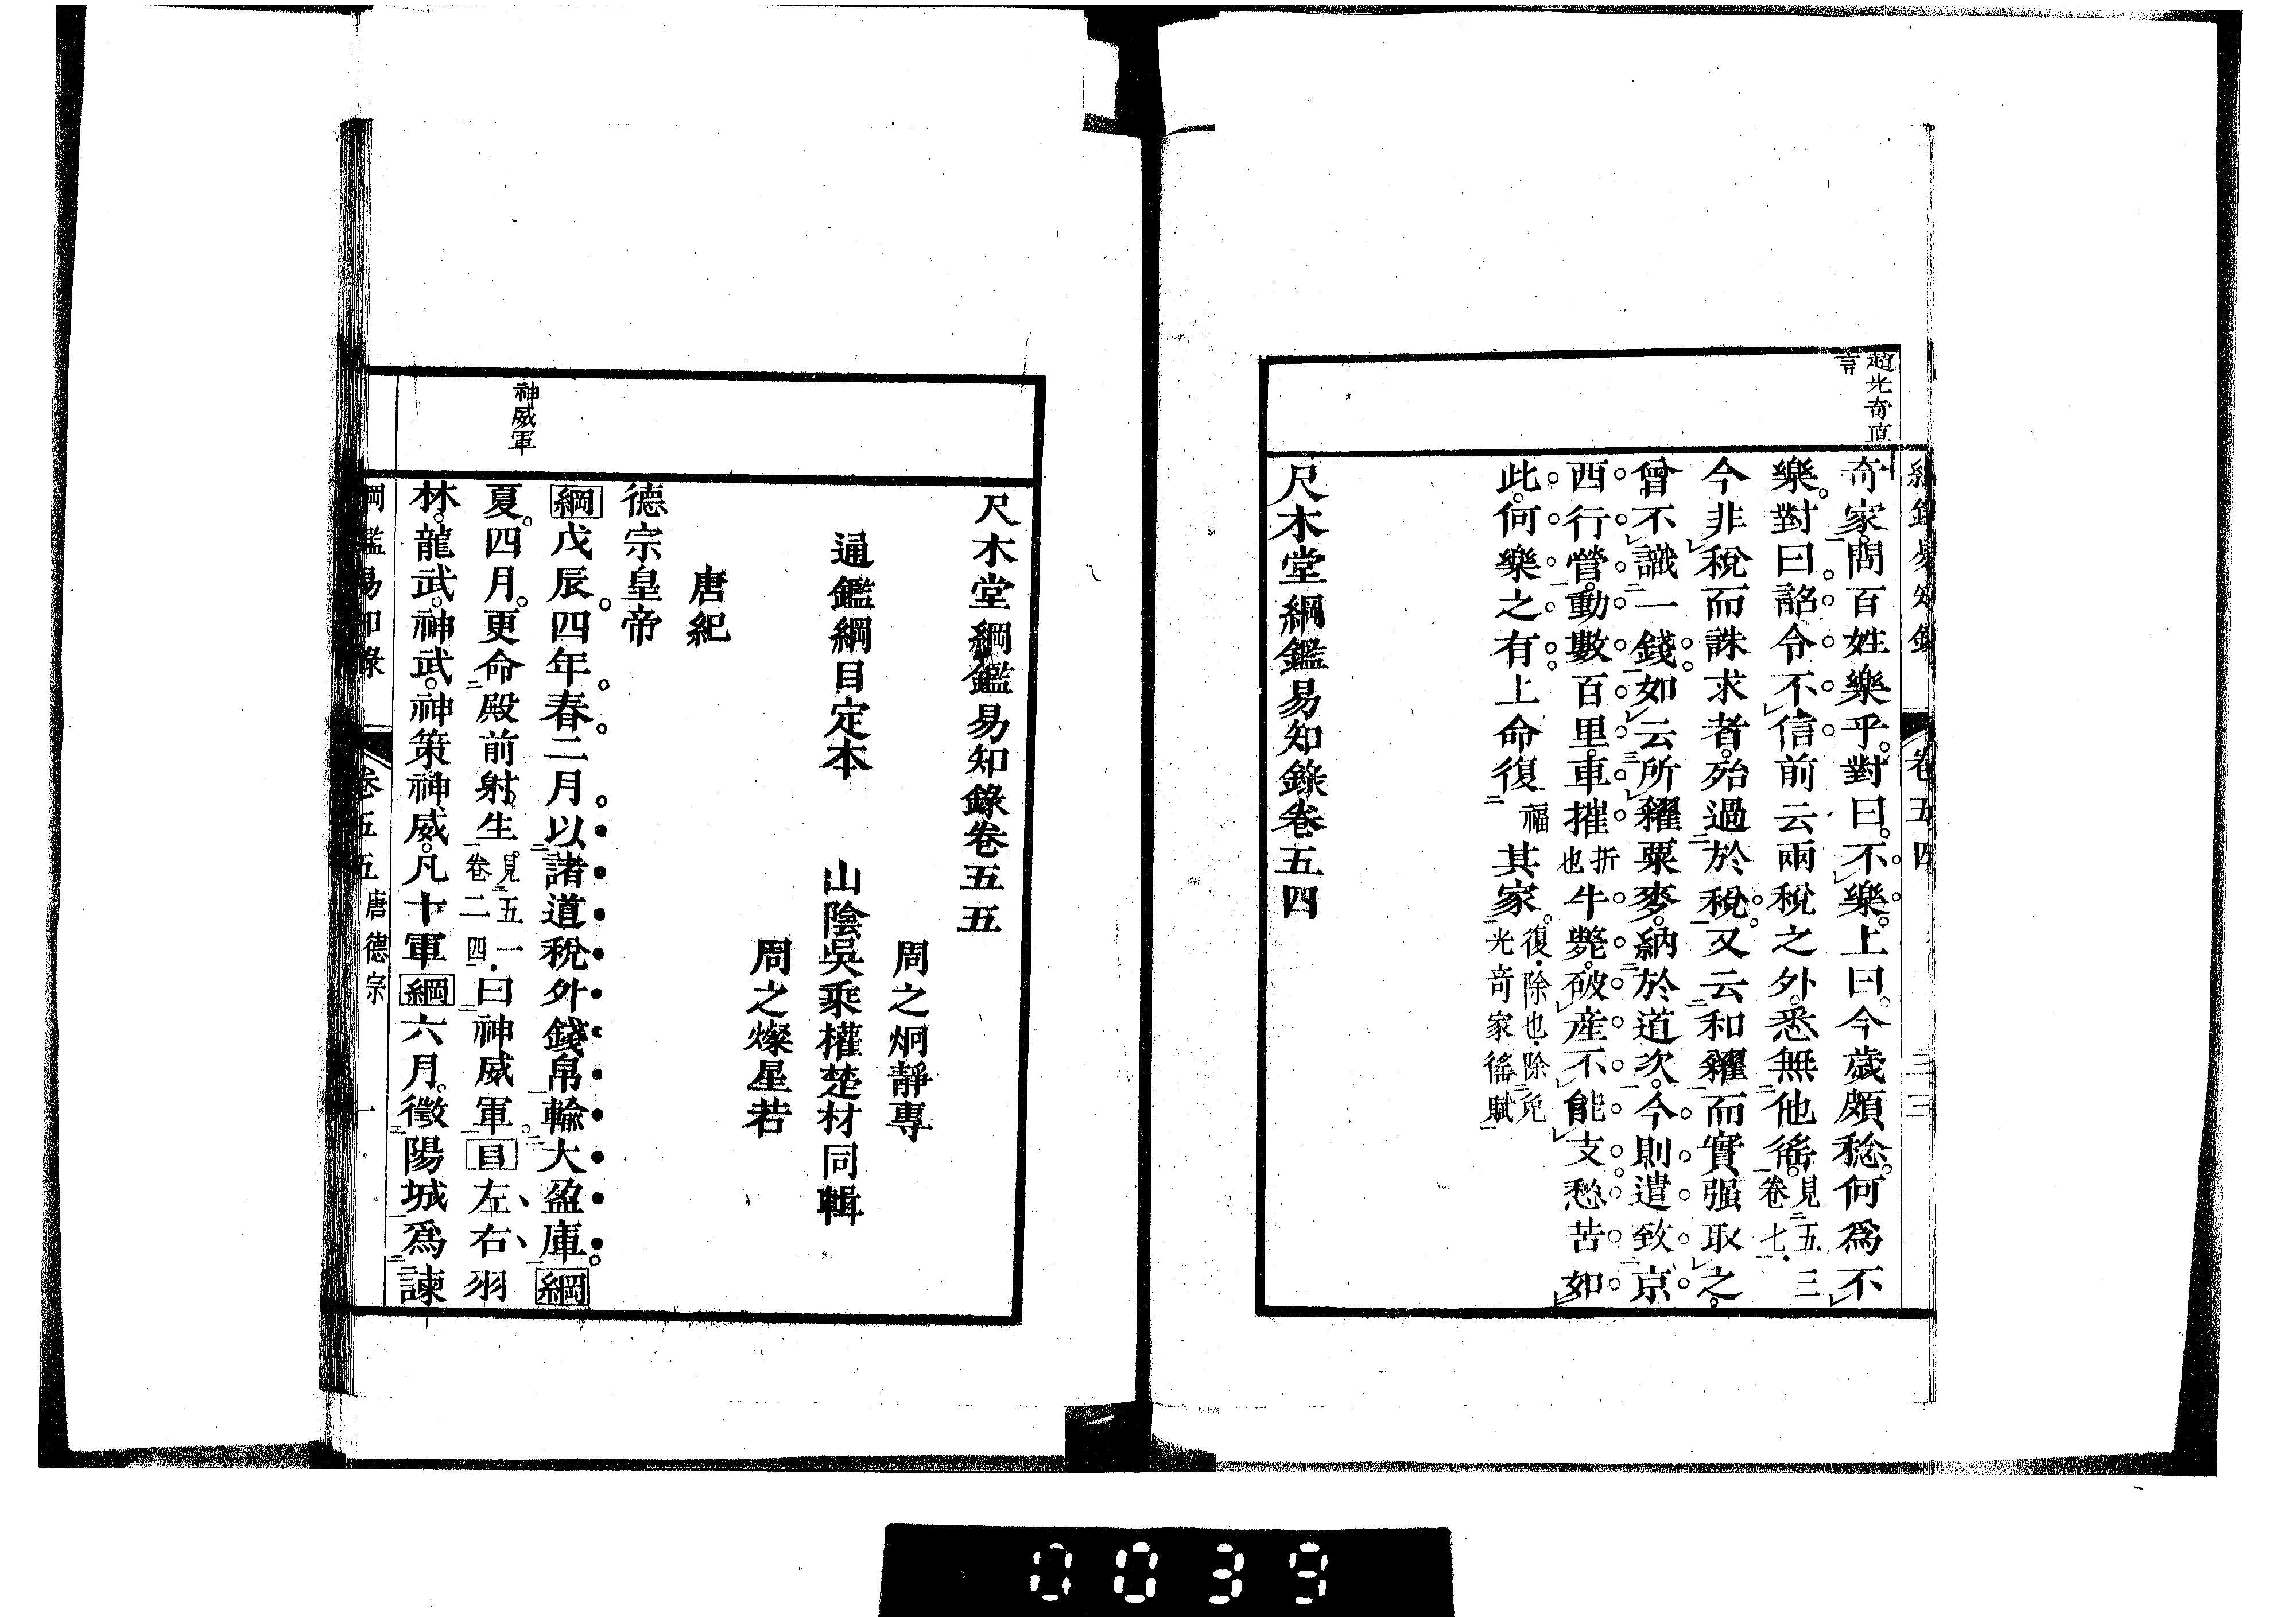 趙光奇直
言
綱鑑易知錄 卷五四 三三
奇家問百姓樂乎對曰不樂上曰今歲頗稔何爲不
樂對曰詔令不信前云兩稅之外悉無他徭見五三卷七
今非稅而誅求者殆過於稅又云和糴而實强取之
曾不識一錢如云所糴粟麥納於道次今則遣致京
西行營動數百里車摧折也牛斃破産不能支愁苦如
此何樂之有上命復福其家復除也除免光奇家徭賦
尺木堂綱鑑易知錄卷五四
尺木堂綱鑑易知錄卷五五
周之炯靜專
通鑑綱目定本 山陰吳乘權楚材同輯
周之燦星若
唐紀
德宗皇帝
神威軍
綱戊辰四年春二月以諸道稅外錢帛輸大盈庫綱
夏四月更命殿前射生見五一卷二四曰神威軍目左右羽
林龍武神武神策神威凡十軍綱六月徵陽城爲諫
綱鑑易知錄 卷五五 唐德宗 一
0039